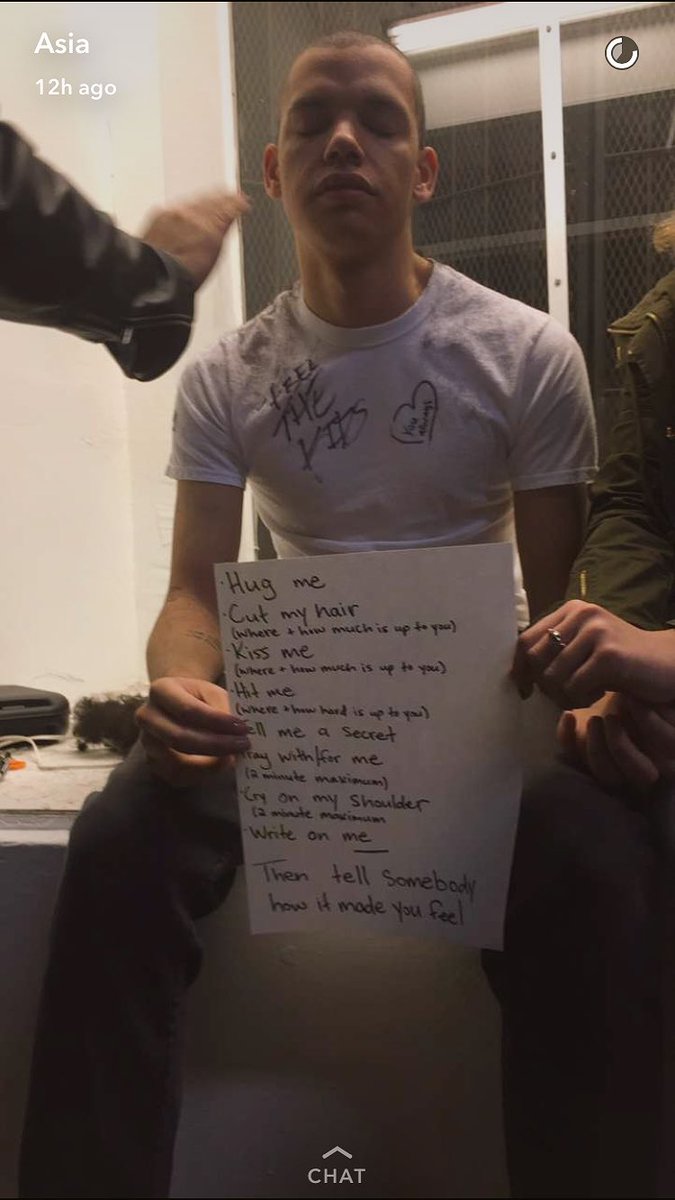 Asia
12h ago
FREE
THE
KIDS
You
always
·Hug me
·Cut my hair
(where + how much is up to you)
·Kiss me
(where + how much is up to you)
·Hit me
(where + how hard is up to you)
Tell me a secret
Pray with/for me
(2 minute maximum)
·Cry on my shoulder
(2 minute maximum
·Write on me
Then tell somebody
how it made you feel
CHAT